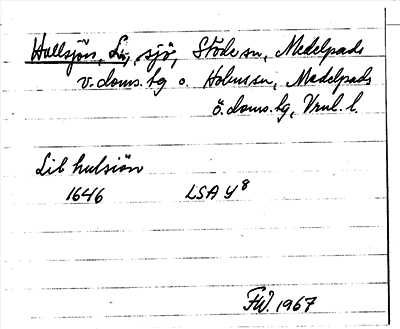 Hullsjön, L:a, sjö, Stöde sn, Medelpads
v. doms. tg o. Holms sn, Medelpads
ö. doms. tg, Vnrl. l.
Lil hulsiön
1646 LSA Y8
FW. 1967